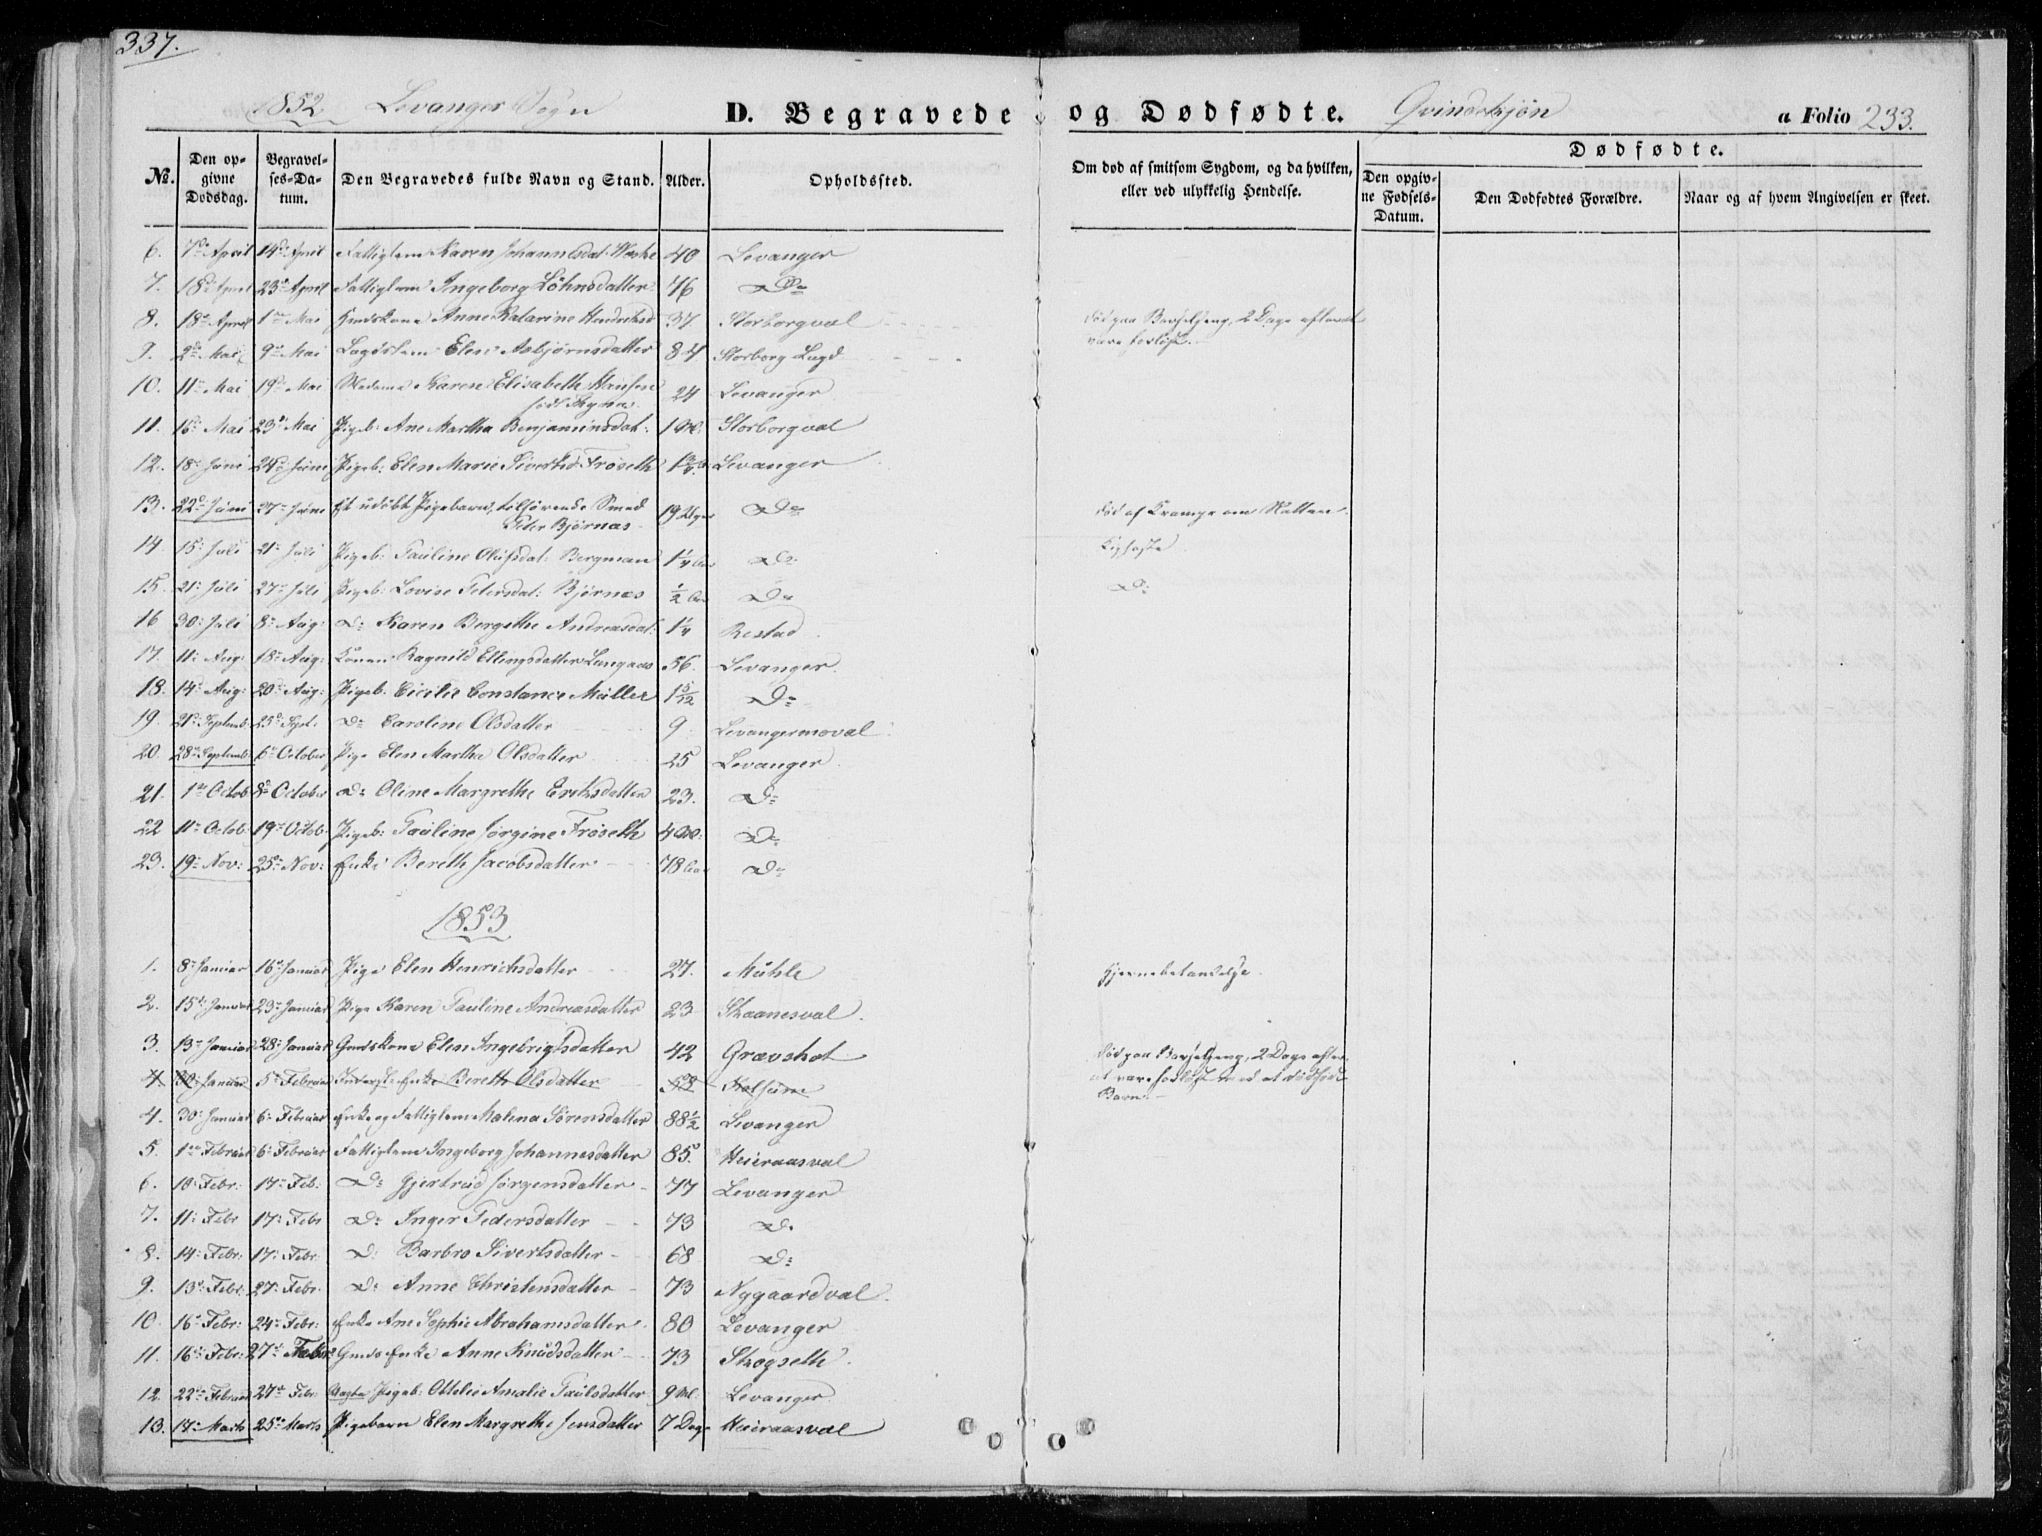 337.
1852. Levanger Sogn D. Begravede og Dødfødte. Qvindekjøn a Folio 233.
No. Den opgivne Dødsdag. Begravelses-Datum. Den Begravedes fulde Navn og Stand. Alder. Opholdssted. Om død af smitsom Sygdom, og da hvilken, eller ved ulykkelig Hendelse. Dødfødte.
Den opgivne Fødsels-Datum. Den Dødfødtes Forældre. Naar og af hvem Angivelsen er skeet.
6. 7de April 14de April Fattiglem Karen Johannesdat: 40 Levanger
7. 18de April 23de April Fattiglem Ingeborg Löhnsdatter 76 Do
8. 18de April 1ste Mai Huuskone Anne Katarine 37 Storborgval død paa Barselseng, 2 Dage efterat
være forløst.
9. 2den Mai 9de Mai Lægdslem Elen Asbjørnsdatter 84 Storborg Lægd
10. 11te Mai 19de Mai Madame Karen Elisabeth Hansen 24 Levanger
født
11. 16de Mai 23de Mai Pigeb: Ane Martha Benjaminsdat: 1 M. Storborgval
12. 18de Juni 24de Juni Pigeb: Elen Marie Sivertsd. Frøseth Levanger
13. 22de Juni 27de Juni Et udöbt Pigebarn, tilhørende Smed 19 Uger Do død af Krampe om Natten.
Peter Björnas
14. 15de Juli 21de Juli Pigeb: Pauline Olufsdat: Bergman 1¼ Aar Do Kighoste
15. 21de Juli 27de Juli Pigeb: Lovise Petersdat: Björnas ½ Aar Do Do
16 30: Juli 8de Aug: Do Karen Bergethe Andreasdat: 1¼ Restad
17. 11te Aug: 18de Aug: Konen Ragnild Ellingsdatter Langaas 56. Levanger.
18. 14de Aug: 20de Aug: Pigeb: Cicilie Constance Müller 1 5/12 Do
19. 21de Septemb: 25de Sept: Do Caroline Olsdatter 9 Levangermoval
20. 28de Septemb: 6te October Pige Elen Martha Olsdatter 25 Levanger
21. 1ste Octob 8de October Do Oline Margrethe Eriksdatter 23. Do
22 11te Octob: 19de Octob: Pigeb: Pauline Jörgine Frøseth 4 M: Do
23. 19de Nov: 25de Nov: Enke Bereth Jacobsdatter 78 Aar Do
1853
1. 8de Januar 16de Januar Pige Elen Henrichsdatter 27. Mühle Hjernebetændelse.
2. 15de Januar 23de Januar Pige Karen Pauline Andreasdatter 23 Skaanesval.
3. 13de Januar 28de Januar Gaardskone Elen Ingebrigtsdatter 42 Gravshat død paa Barselseng, 2 Dage efter
4 30: Januar 5te Februar Inderste Enke Bereth Olsdatter 58 at være forløst med et dødfødt
Barn.
4. 30: Januar 6te Februar Enke og Fattiglem Malena Sörensdatter 88½ Levanger
5. 1ste Februar 6te Februar Fattiglem Ingeborg Johannesdatter 85. Heieraasval
6. 10: Febr: 17de Feb: Do Gjertrud Jörgensdatter 77 Levanger
7. 11te Febr 17de Febr Do Inger Pedersdatter 73 Do
8. 14de Febr. 17de Febr. Do Barbro Sivertsdatter 68 Do
9. 13de Febr. 27de Febr. Do Anne Christensdatter 73 Nygaardval.
10. 16de Febr: 24de Febr: Enke Ane Sophie Abrahamsdatter 80 Levanger
11. 16de Febr: 27de Febr: Gaards Enke Anne Knudsdatter 73 Skogseth.
12. 22de Februar 27de Febr. Pigeb: Ottelie Amalie Paulsdatter 9 M: Levanger
13. 17de Marts 25de Marts Pigebarn Elen Margrethe Jensdatter 7 Dage Heieraasval